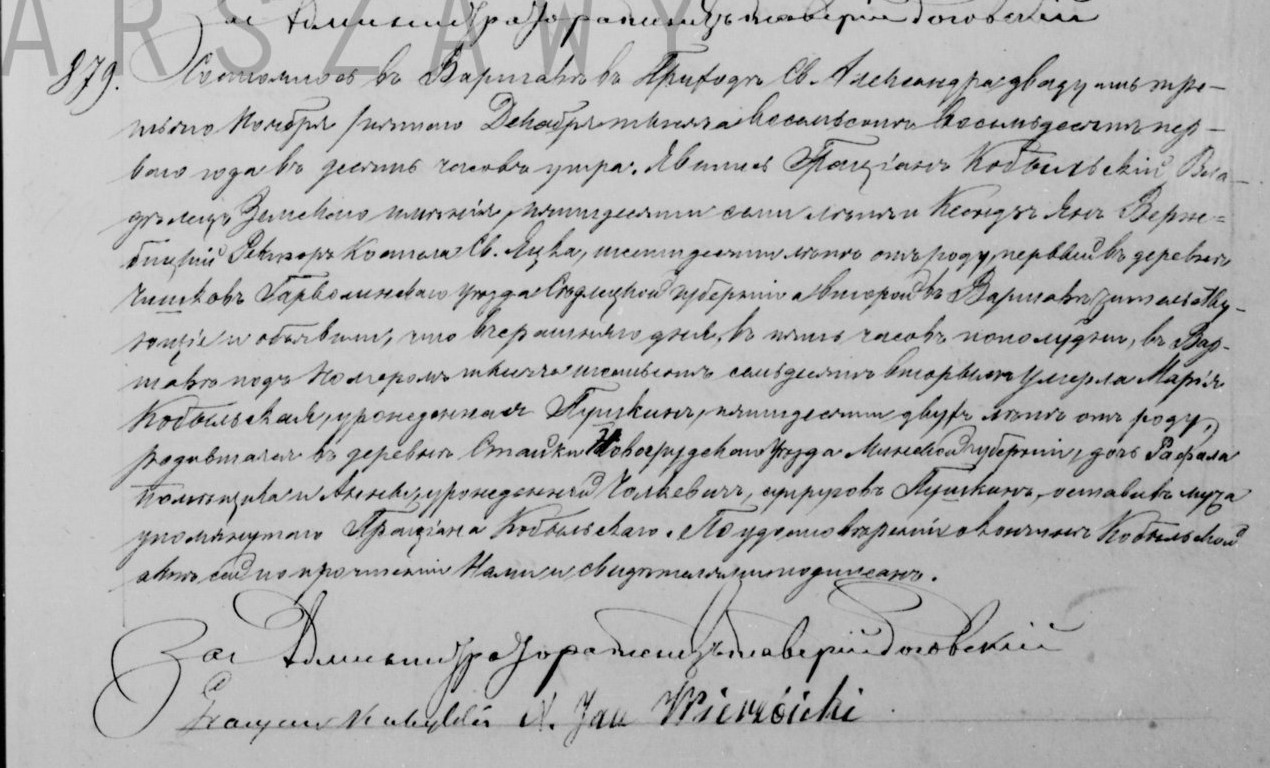 ARSZAWY
За Администратора Ксаверий Роговский
879. Состоялось въ Варшавѣ въ Приходѣ Св. Александра двадцать тре-
тьяго Ноября /пятаго Декабря тысяча восемьсотъ восемьдесятъ пер-
ваго года въ десять часовъ утра. Явились Граціанъ Кобыльскій Вла-
дѣлецъ Земскаго имѣнія, пятидесяти семи лѣтъ и Ксендзъ Янъ Верж-
бицкій Ректоръ Костела Св. Яцка, шестидесяти лѣтъ отъ роду, первый въ деревнѣ
Гарволинскаго уѣзда Сѣдлецкой губерніи а второй въ Варшавѣ жительству-
ющіе и объявили, что вчерашняго дня, въ пять часовъ пополудни, въ Вар-
шавѣ подъ номеромъ тысяча шестьсотъ семьдесятъ вторымъ умерла Марія
Кобыльская, урожденная Пушкинъ, пятидесяти двухъ лѣтъ отъ роду,
родившаяся въ деревнѣ Стайки Новогрудскаго уѣзда Минской губерніи, дочь Рафала
помѣщика и Анны урожденной супруговъ Пушкинъ, оставивъ мужа
упомянутаго Граціана Кобыльскаго. По удостовѣреніи о кончинѣ Кобыльской
актъ сей по прочтеніи Нами и свидѣтелями подписанъ.
За Администратора Ксаверий Роговский
Gracyan Kobylski X. Jan Wierzbicki